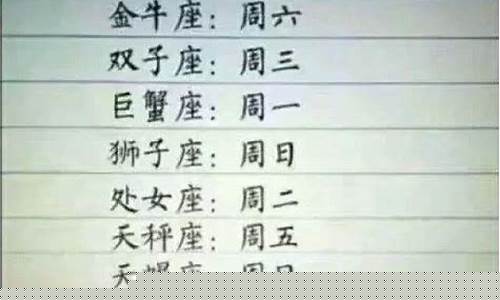 金牛座：周六
双子座：周三
巨蟹座：周一
狮子座：周日
处女座：周二
天秤座：周五
天